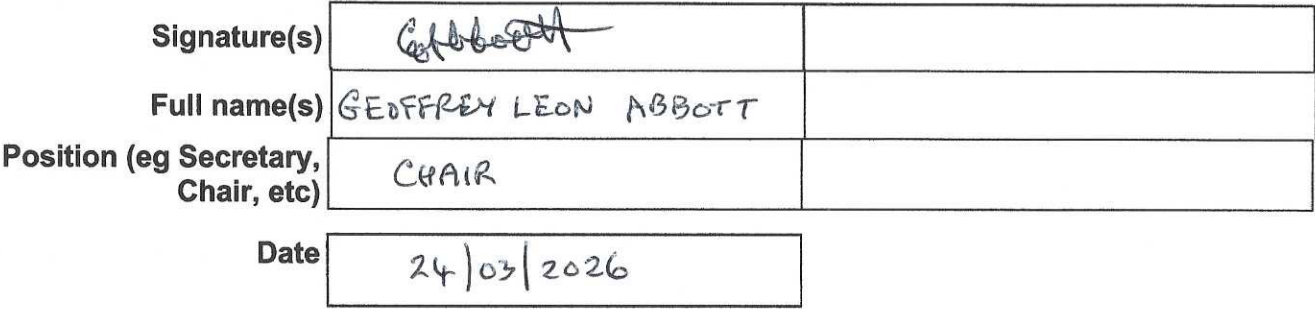 Signature(s)
Full name(s) GEOFFREY LEON ABBOTT
Position (eg Secretary,
Chair, etc) CHAIR
Date 24/03/2026